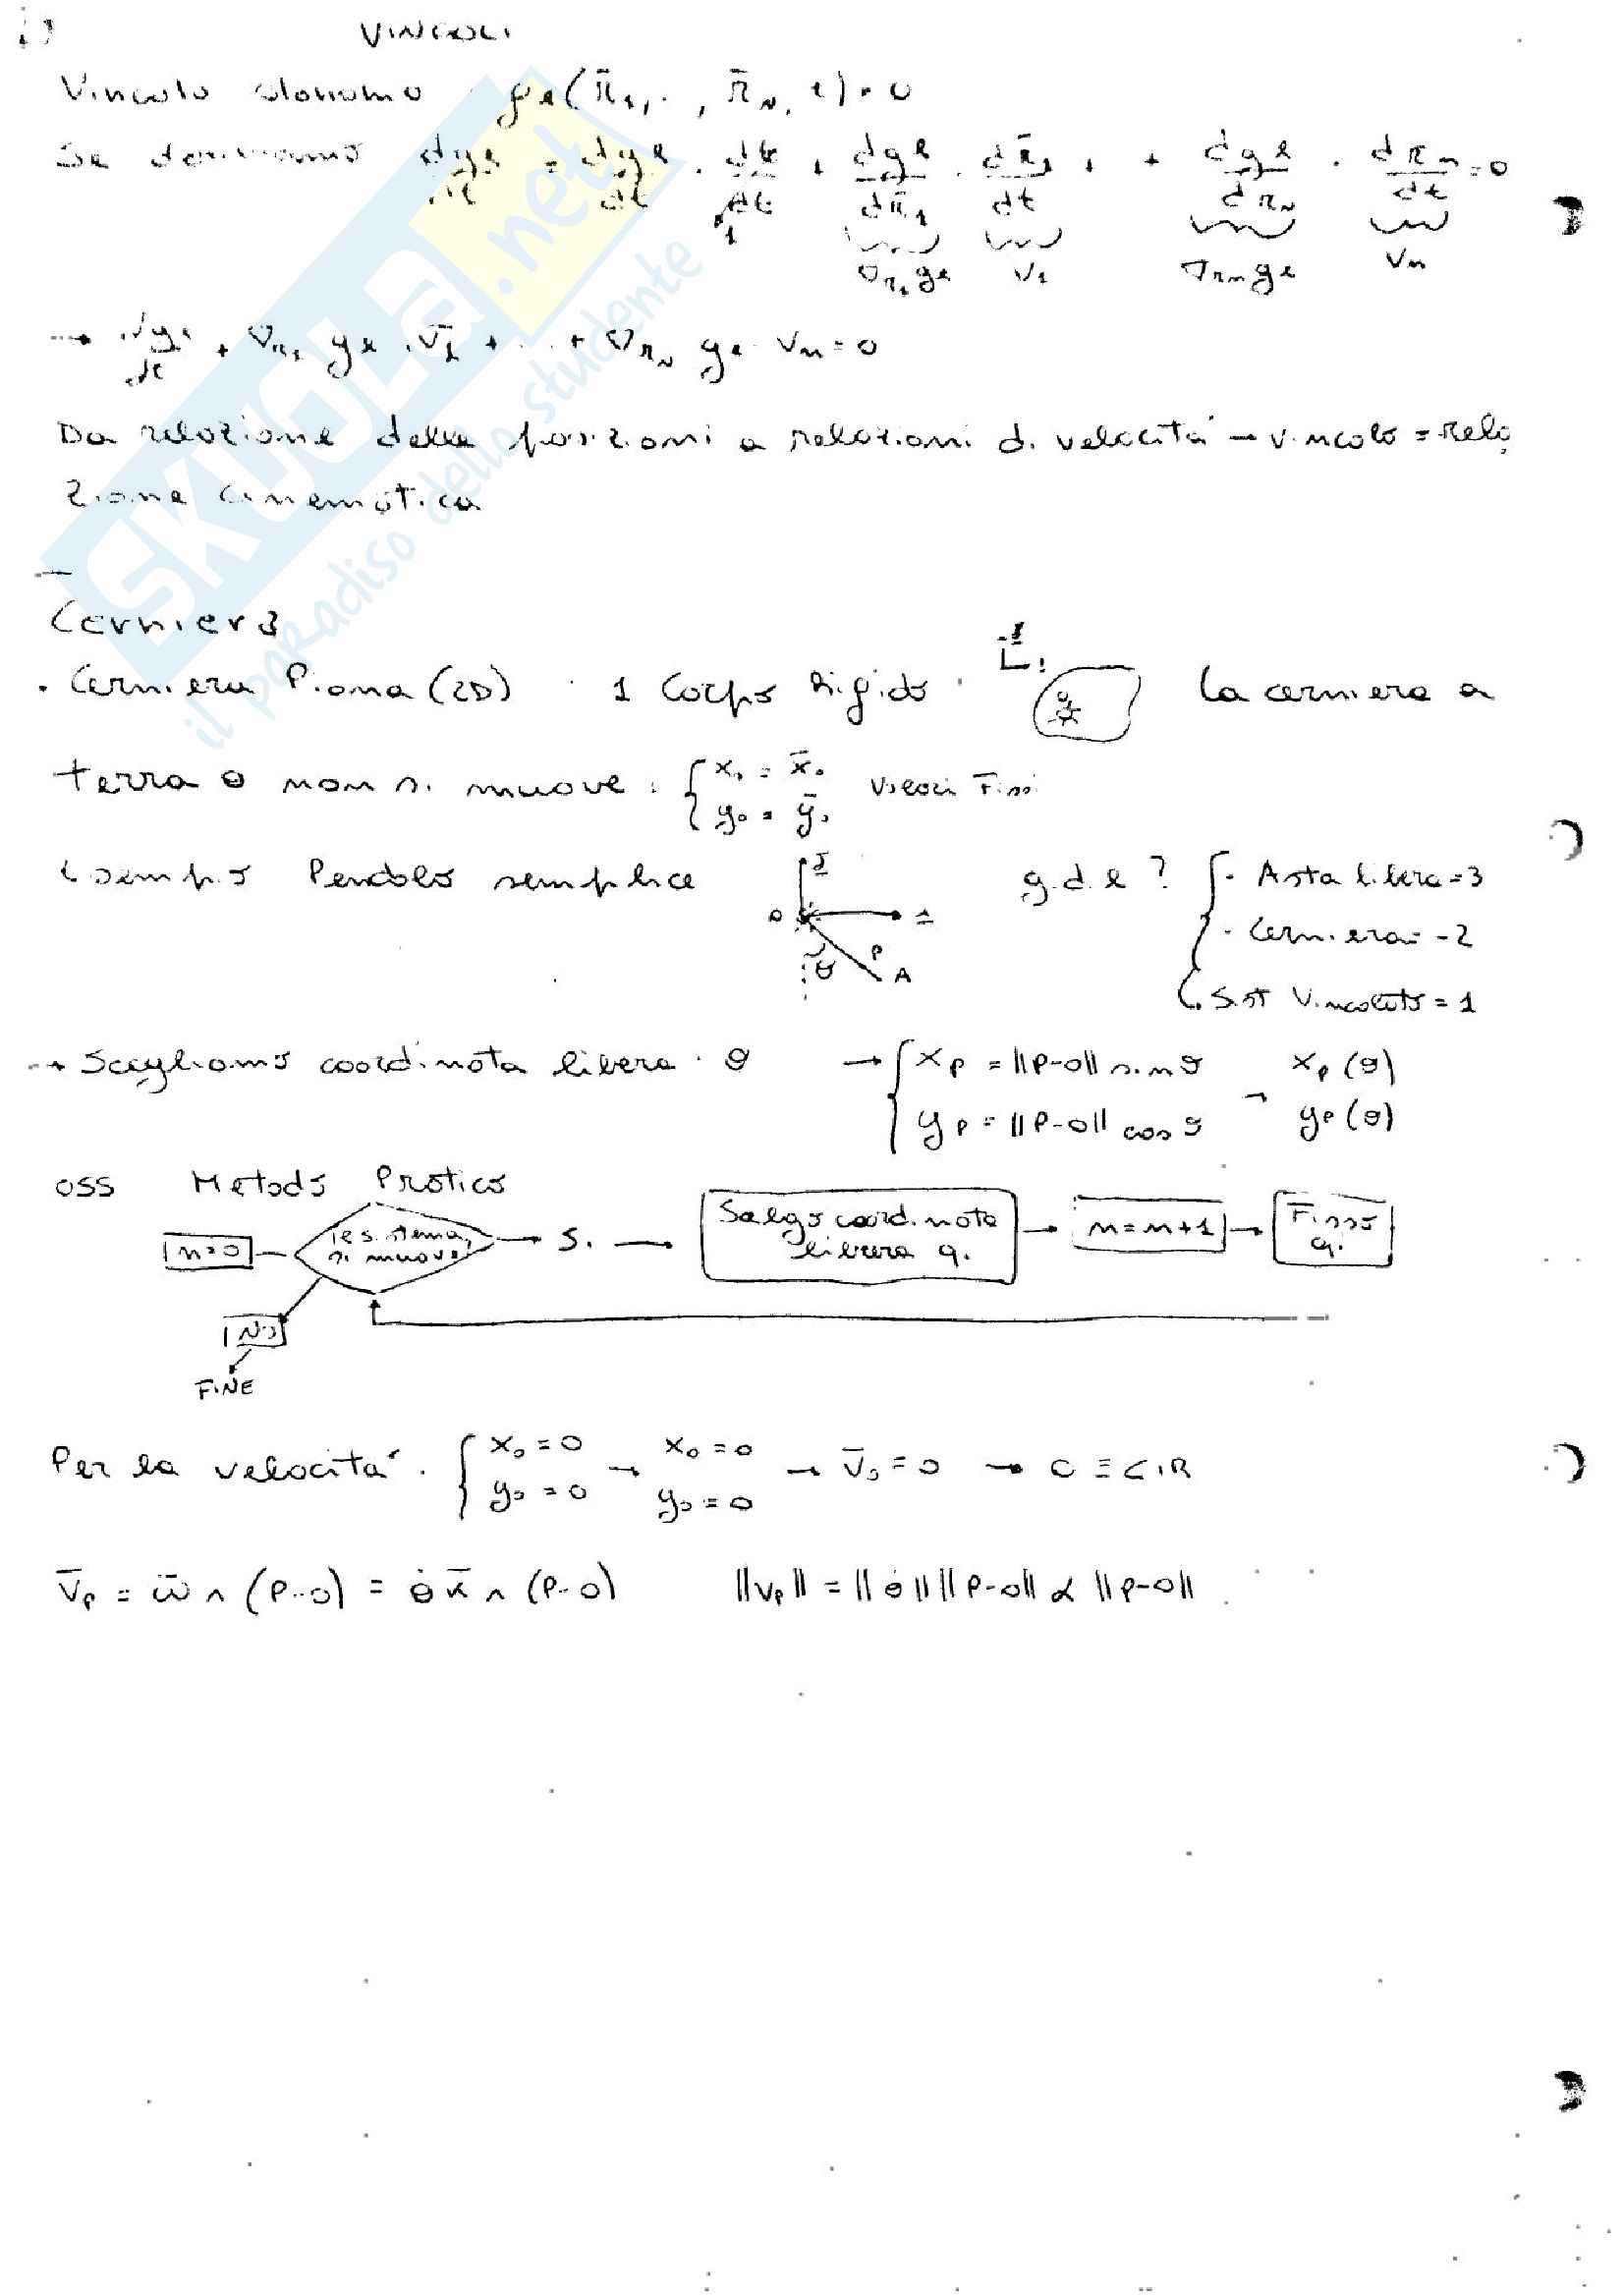 VINCOLI
Vincolo olonomo : gℓ(r̄₁, . , r̄_N, t) = 0
Se deriviamo dgℓ/dt = dgℓ/dt · dt/dt + dgℓ/dr̄₁ · dr̄₁/dt + + dgℓ/dr_N · dr_n/dt = 0
1 ∇r₁gℓ v₁ ∇r_n gℓ v_n
→ dgℓ/dt + ∇r₁ gℓ · v̄₁ + . . + ∇r_N gℓ · v_n = 0
Da relazione delle posizioni a relazioni di velocità → vincolo = rela
zione cinematica
Cerniera
. Cerniera Piana (2D) : 1 Corpo Rigido : La cerniera a
terra o non si muove : { x₀ = x̄₀ Valori Fissi
y₀ = ȳ₀
Esempio Pendolo semplice g.d.l ? { · Asta libera = 3
O θ P A · Cerniera = -2
· Sist Vincolato = 1
→ Scegliamo coordinata libera : θ → { x_P = ||P-O|| sin θ → x_P (θ)
y_P = ||P-O|| cos θ y_P (θ)
OSS Metodo Pratico
n=0 Il sistema si muove? → Si → Scelgo coordinata libera q. → n = n+1 → Fisso q.
NO
FINE
Per la velocità : { x₀ = 0 → x₀ = 0 → v̄₀ = 0 → O ≡ CIR
y₀ = 0 y₀ = 0
v̄_P = ω̄ ∧ (P-O) = θ̇ k̄ ∧ (P-O) ||v_P|| = ||θ̇|| ||P-O|| α ||P-O||
SKUOLA.net
il paradiso dello studente